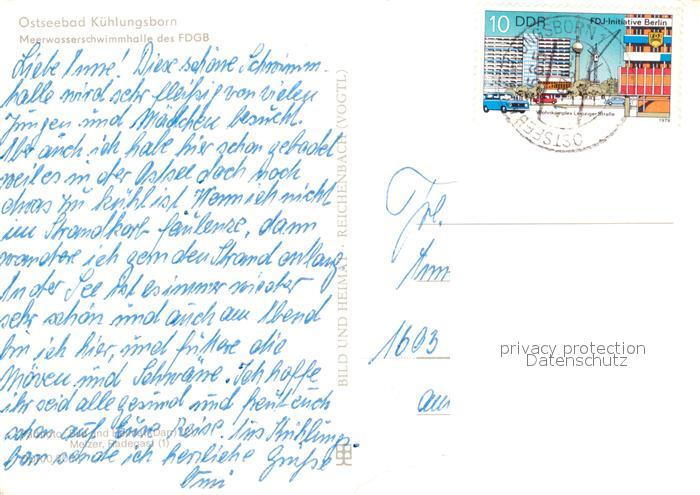 Ostseebad Kühlungsborn
Meerwasserschwimmhalle des FDGB
Liebe Anne! Diese schöne Schwimm-
halle wird sehr fleißig von vielen
Jungen und Mädchen besucht.
Aber auch ich habe hier schon gebadet
weil es in der Ostsee doch noch
etwas zu kühl ist. Wenn ich nicht
im Strandkorb faulenze, dann
wandere ich gern den Strand entlang.
An der See ist es immer wieder
sehr schön und auch am Abend
bin ich hier, und füttere die
Möven und Schwäne. Ich hoffe
ihr seid alle gesund und freut euch
schon auf eure Reise. Aus Kühlungs-
born sende ich herzliche Grüße
Omi
Metzer, Radegast (1)
BILD UND HEIMAT · REICHENBACH (VOGTL)
10 DDR FDJ-Initiative Berlin
Wohnkomplex Leipziger Straße
1979
OSTSEEB
Frl.
Ann
1603
privacy protection
Datenschutz
am